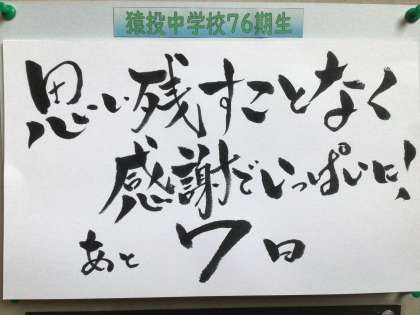 猿投中学校76期生
思い残すことなく
感謝でいっぱいに！
あと 7日